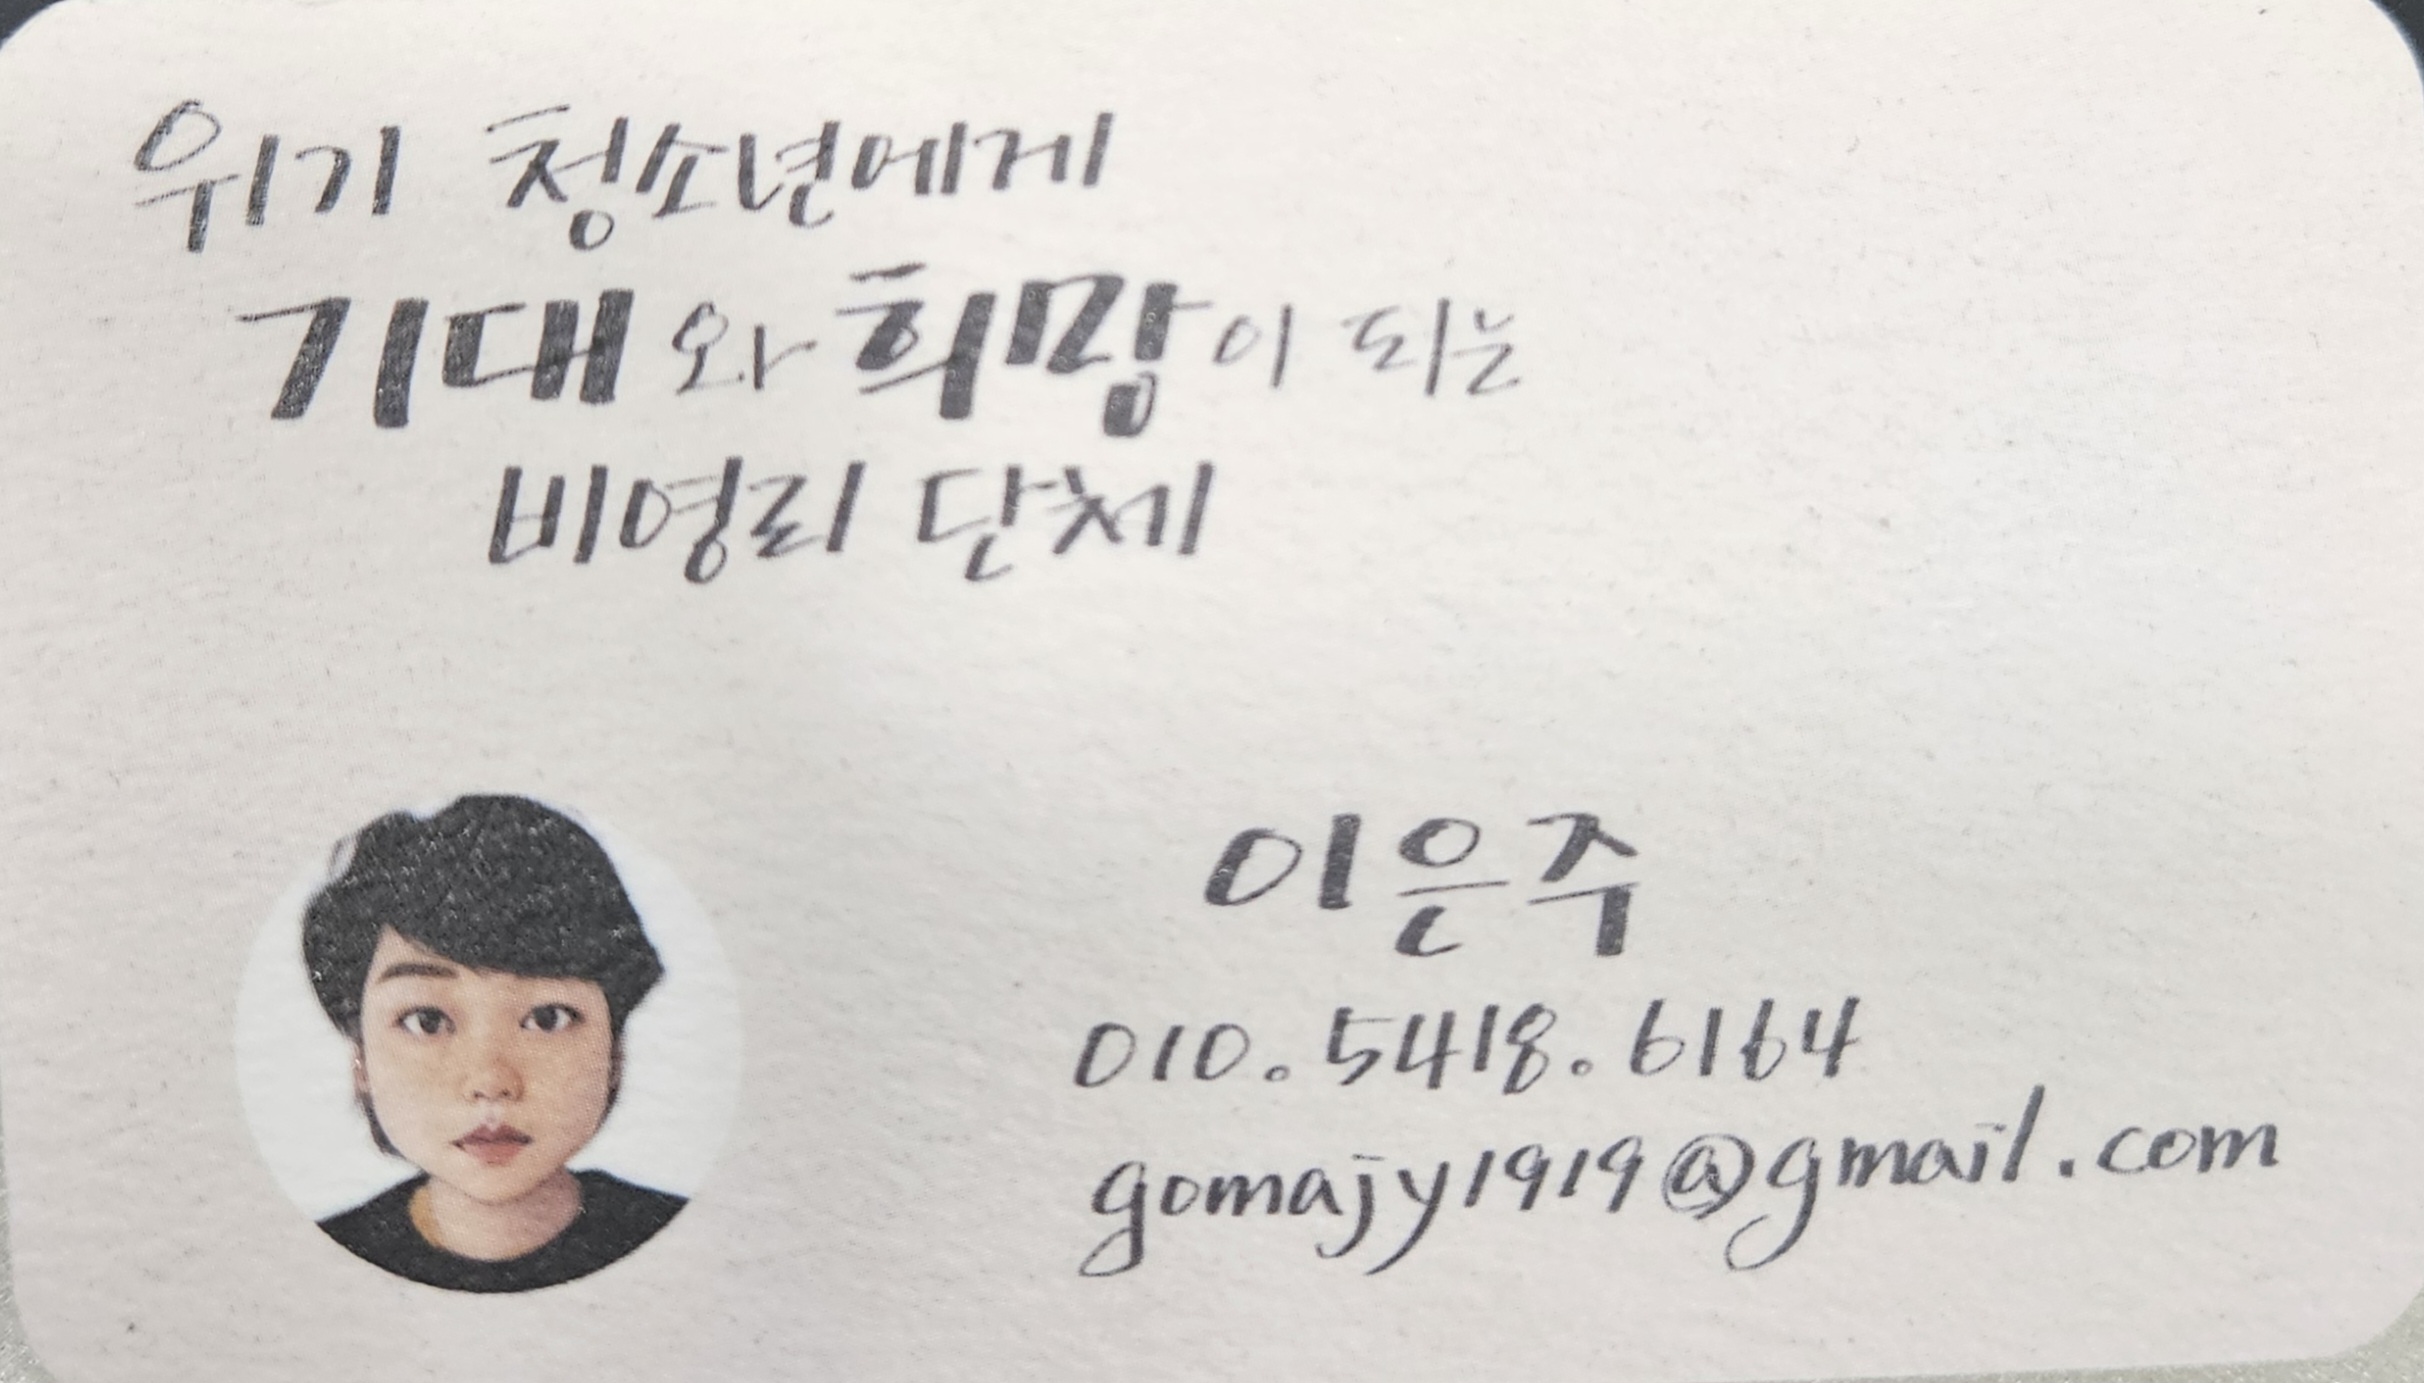 위기 청소년에게
기대와 희망이 되는
비영리 단체
이은주
010.5418.6164
gomajy1919@gmail.com